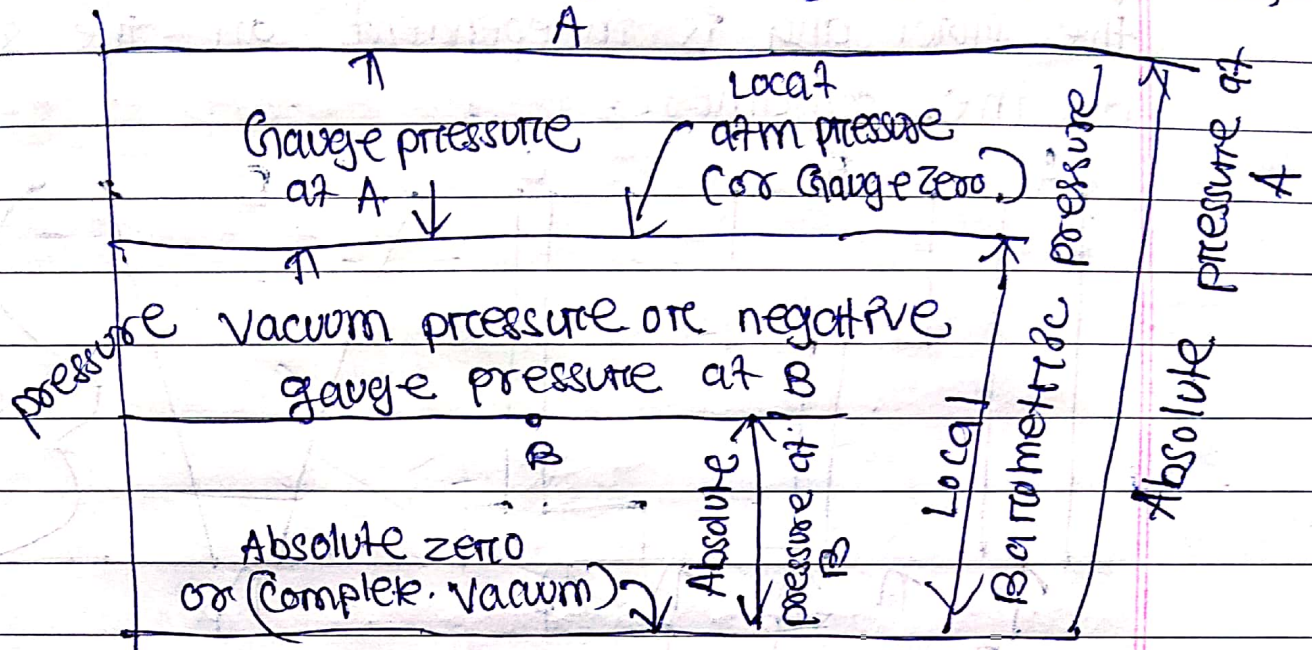 A
Gauge pressure
at A
Local
atm pressure
(or Gauge zero.)
pressure
Vacuum pressure or negative
gauge pressure at B
B
Absolute zero
or (Complete. Vacuum)
Absolute
pressure at
B
Local
Barometric pressure
Absolute pressure at
A